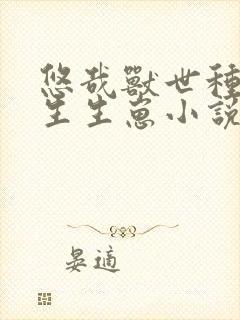 悠哉獸世種
生生崽小說
晏適